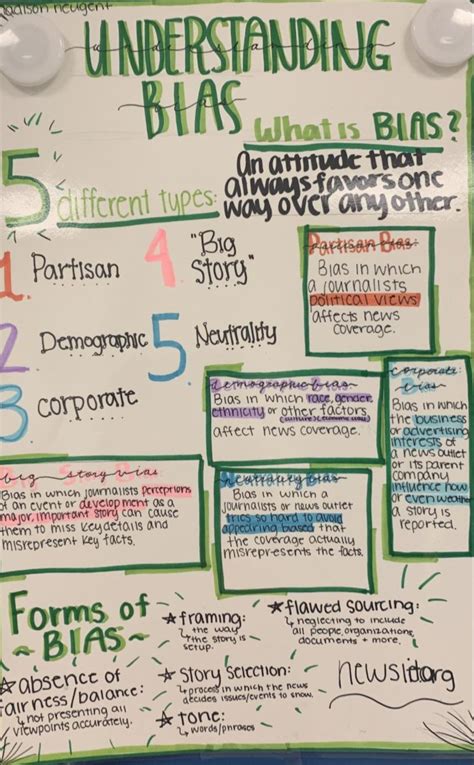 madison neugent
UNDERSTANDING
understanding
BIAS
bias
What is BIAS?
An attitude that
always favors one
way over any other.
5 different types:
1. Partisan
2. Demographic
3. corporate
4. "Big
Story"
5. Neutrality
Partisan Bias:
Bias in which
a journalists
political views
affects news
coverage.
demographic bias
Bias in which race, gender,
ethnicity or other factors
affect news coverage.
corporate
bias
Bias in which
the business
or advertising
interests of
a news outlet
or its parent
company
influence how
or even weather
a story is
reported.
big story bias
Bias in which journalists perceptions
of an event or development as a
major, important story can cause
them to miss key details and
misrepresent key facts.
Neutrality bias
Bias in which a
journalists or news outlet
tries so hard to avoid
appearing biased that
the coverage actually
misrepresents the facts.
Forms of
~BIAS~
★ framing:
↳ the way
the story is
setup.
★ flawed sourcing:
↳ neglecting to include
all people, organizations,
documents + more.
★ absence of
fairness/balance:
↳ not presenting all
viewpoints accurately.
★ Story Selection:
↳ process in which the news
decides issues/events to show.
★ tone:
↳ words/phrases
newslitorg